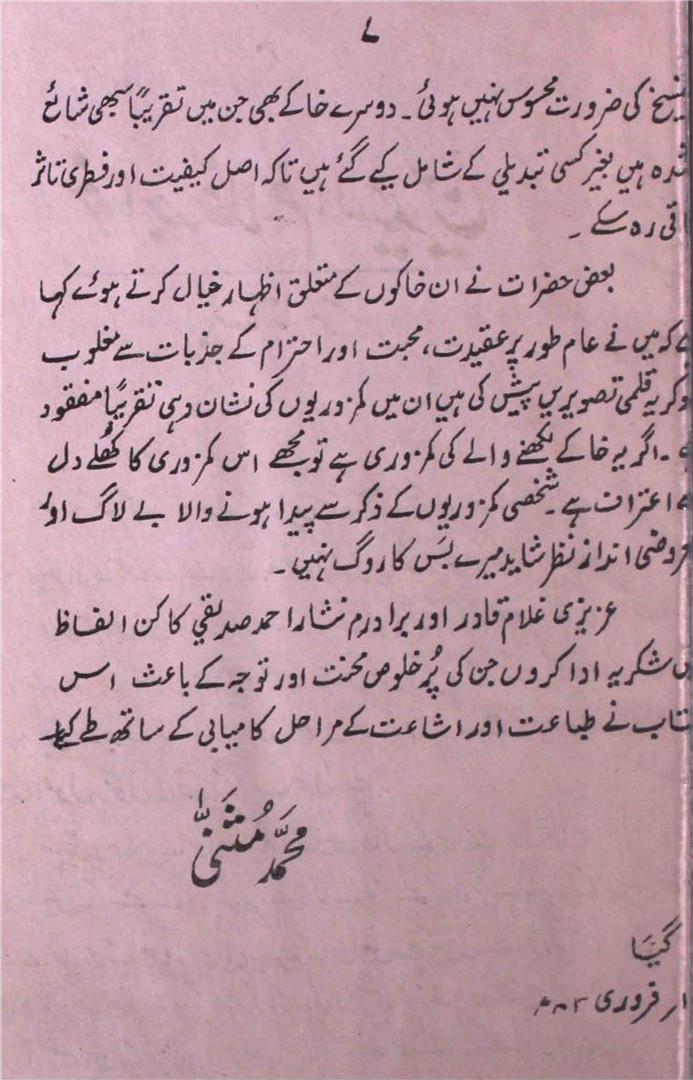 ۷
کی ضرورت محسوس نہیں ہوئی۔ دوسرے خاکے بھی جن میں تقریباً سبھی شائع
شدہ ہیں بغیر کسی تبدیلی کے شامل کیے گئے ہیں تاکہ اصل کیفیت اور فطری تاثر
رہ سکے۔
بعض حضرات نے ان خاکوں کے متعلق اظہار خیال کرتے ہوئے کہا
کہ میں نے عام طور پر عقیدت، محبت اور احترام کے جذبات سے مغلوب
یہ قلمی تصویریں پیش کی ہیں ان میں کمزوریوں کی نشان دہی تقریباً مفقود
۔ اگر یہ خاکے لکھنے والے کی کمزوری ہے تو مجھے اس کمزوری کا کھلے دل
اعتراف ہے۔ شخصی کمزوریوں کے ذکر سے پیدا ہونے والا بے لاگ اور
انداز نظر شاید میرے بَس کا روگ نہیں۔
عزیزی غلام قادر اور برادرم نثار احمد صدیقی کا کن الفاظ
شکریہ ادا کروں جن کی پُر خلوص محنت اور توجہ کے باعث اس
نے طباعت اور اشاعت کے مراحل کامیابی کے ساتھ طے کیے۔
محمّد مُثنّیٰ
گیَا
فروری